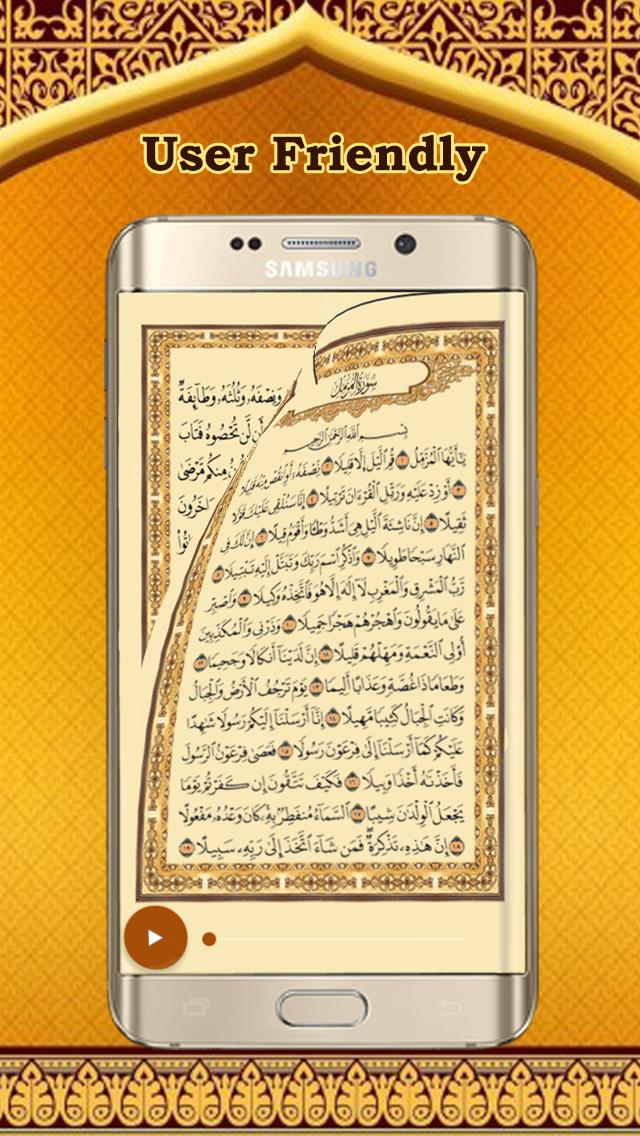 User Friendly
SAMSUNG
وَنِصْفَهُۥ وَثُلُثَهُۥ وَطَآئِفَةٌ
أَن لَّن تُحْصُوهُ فَتَابَ
مِنكُم مَّرْضَىٰ
سُورَةُ المُزَّمِّلِ
بِسْمِ ٱللَّهِ ٱلرَّحْمَٰنِ ٱلرَّحِيمِ
يَٰٓأَيُّهَا ٱلْمُزَّمِّلُ ١ قُمِ ٱلَّيْلَ إِلَّا قَلِيلًا ٢ نِّصْفَهُۥٓ أَوِ ٱنقُصْ مِنْهُ قَلِيلًا
٣ أَوْ زِدْ عَلَيْهِ وَرَتِّلِ ٱلْقُرْءَانَ تَرْتِيلًا ٤ إِنَّا سَنُلْقِى عَلَيْكَ قَوْلًا
ثَقِيلًا ٥ إِنَّ نَاشِئَةَ ٱلَّيْلِ هِىَ أَشَدُّ وَطْـًٔا وَأَقْوَمُ قِيلًا ٦ إِنَّ لَكَ فِى
ٱلنَّهَارِ سَبْحًا طَوِيلًا ٧ وَٱذْكُرِ ٱسْمَ رَبِّكَ وَتَبَتَّلْ إِلَيْهِ تَبْتِيلًا ٨
رَّبُّ ٱلْمَشْرِقِ وَٱلْمَغْرِبِ لَآ إِلَٰهَ إِلَّا هُوَ فَٱتَّخِذْهُ وَكِيلًا ٩ وَٱصْبِرْ
عَلَىٰ مَا يَقُولُونَ وَٱهْجُرْهُمْ هَجْرًا جَمِيلًا ١٠ وَذَرْنِى وَٱلْمُكَذِّبِينَ
أُو۟لِى ٱلنَّعْمَةِ وَمَهِّلْهُمْ قَلِيلًا ١١ إِنَّ لَدَيْنَآ أَنكَالًا وَجَحِيمًا ١٢
وَطَعَامًا ذَا غُصَّةٍ وَعَذَابًا أَلِيمًا ١٣ يَوْمَ تَرْجُفُ ٱلْأَرْضُ وَٱلْجِبَالُ
وَكَانَتِ ٱلْجِبَالُ كَثِيبًا مَّهِيلًا ١٤ إِنَّآ أَرْسَلْنَآ إِلَيْكُمْ رَسُولًا شَٰهِدًا
عَلَيْكُمْ كَمَآ أَرْسَلْنَآ إِلَىٰ فِرْعَوْنَ رَسُولًا ١٥ فَعَصَىٰ فِرْعَوْنُ ٱلرَّسُولَ
فَأَخَذْنَٰهُ أَخْذًا وَبِيلًا ١٦ فَكَيْفَ تَتَّقُونَ إِن كَفَرْتُمْ يَوْمًا
يَجْعَلُ ٱلْوِلْدَٰنَ شِيبًا ١٧ ٱلسَّمَآءُ مُنفَطِرٌۢ بِهِۦ كَانَ وَعْدُهُۥ مَفْعُولًا
١٨ إِنَّ هَٰذِهِۦ تَذْكِرَةٌ فَمَن شَآءَ ٱتَّخَذَ إِلَىٰ رَبِّهِۦ سَبِيلًا ١٩